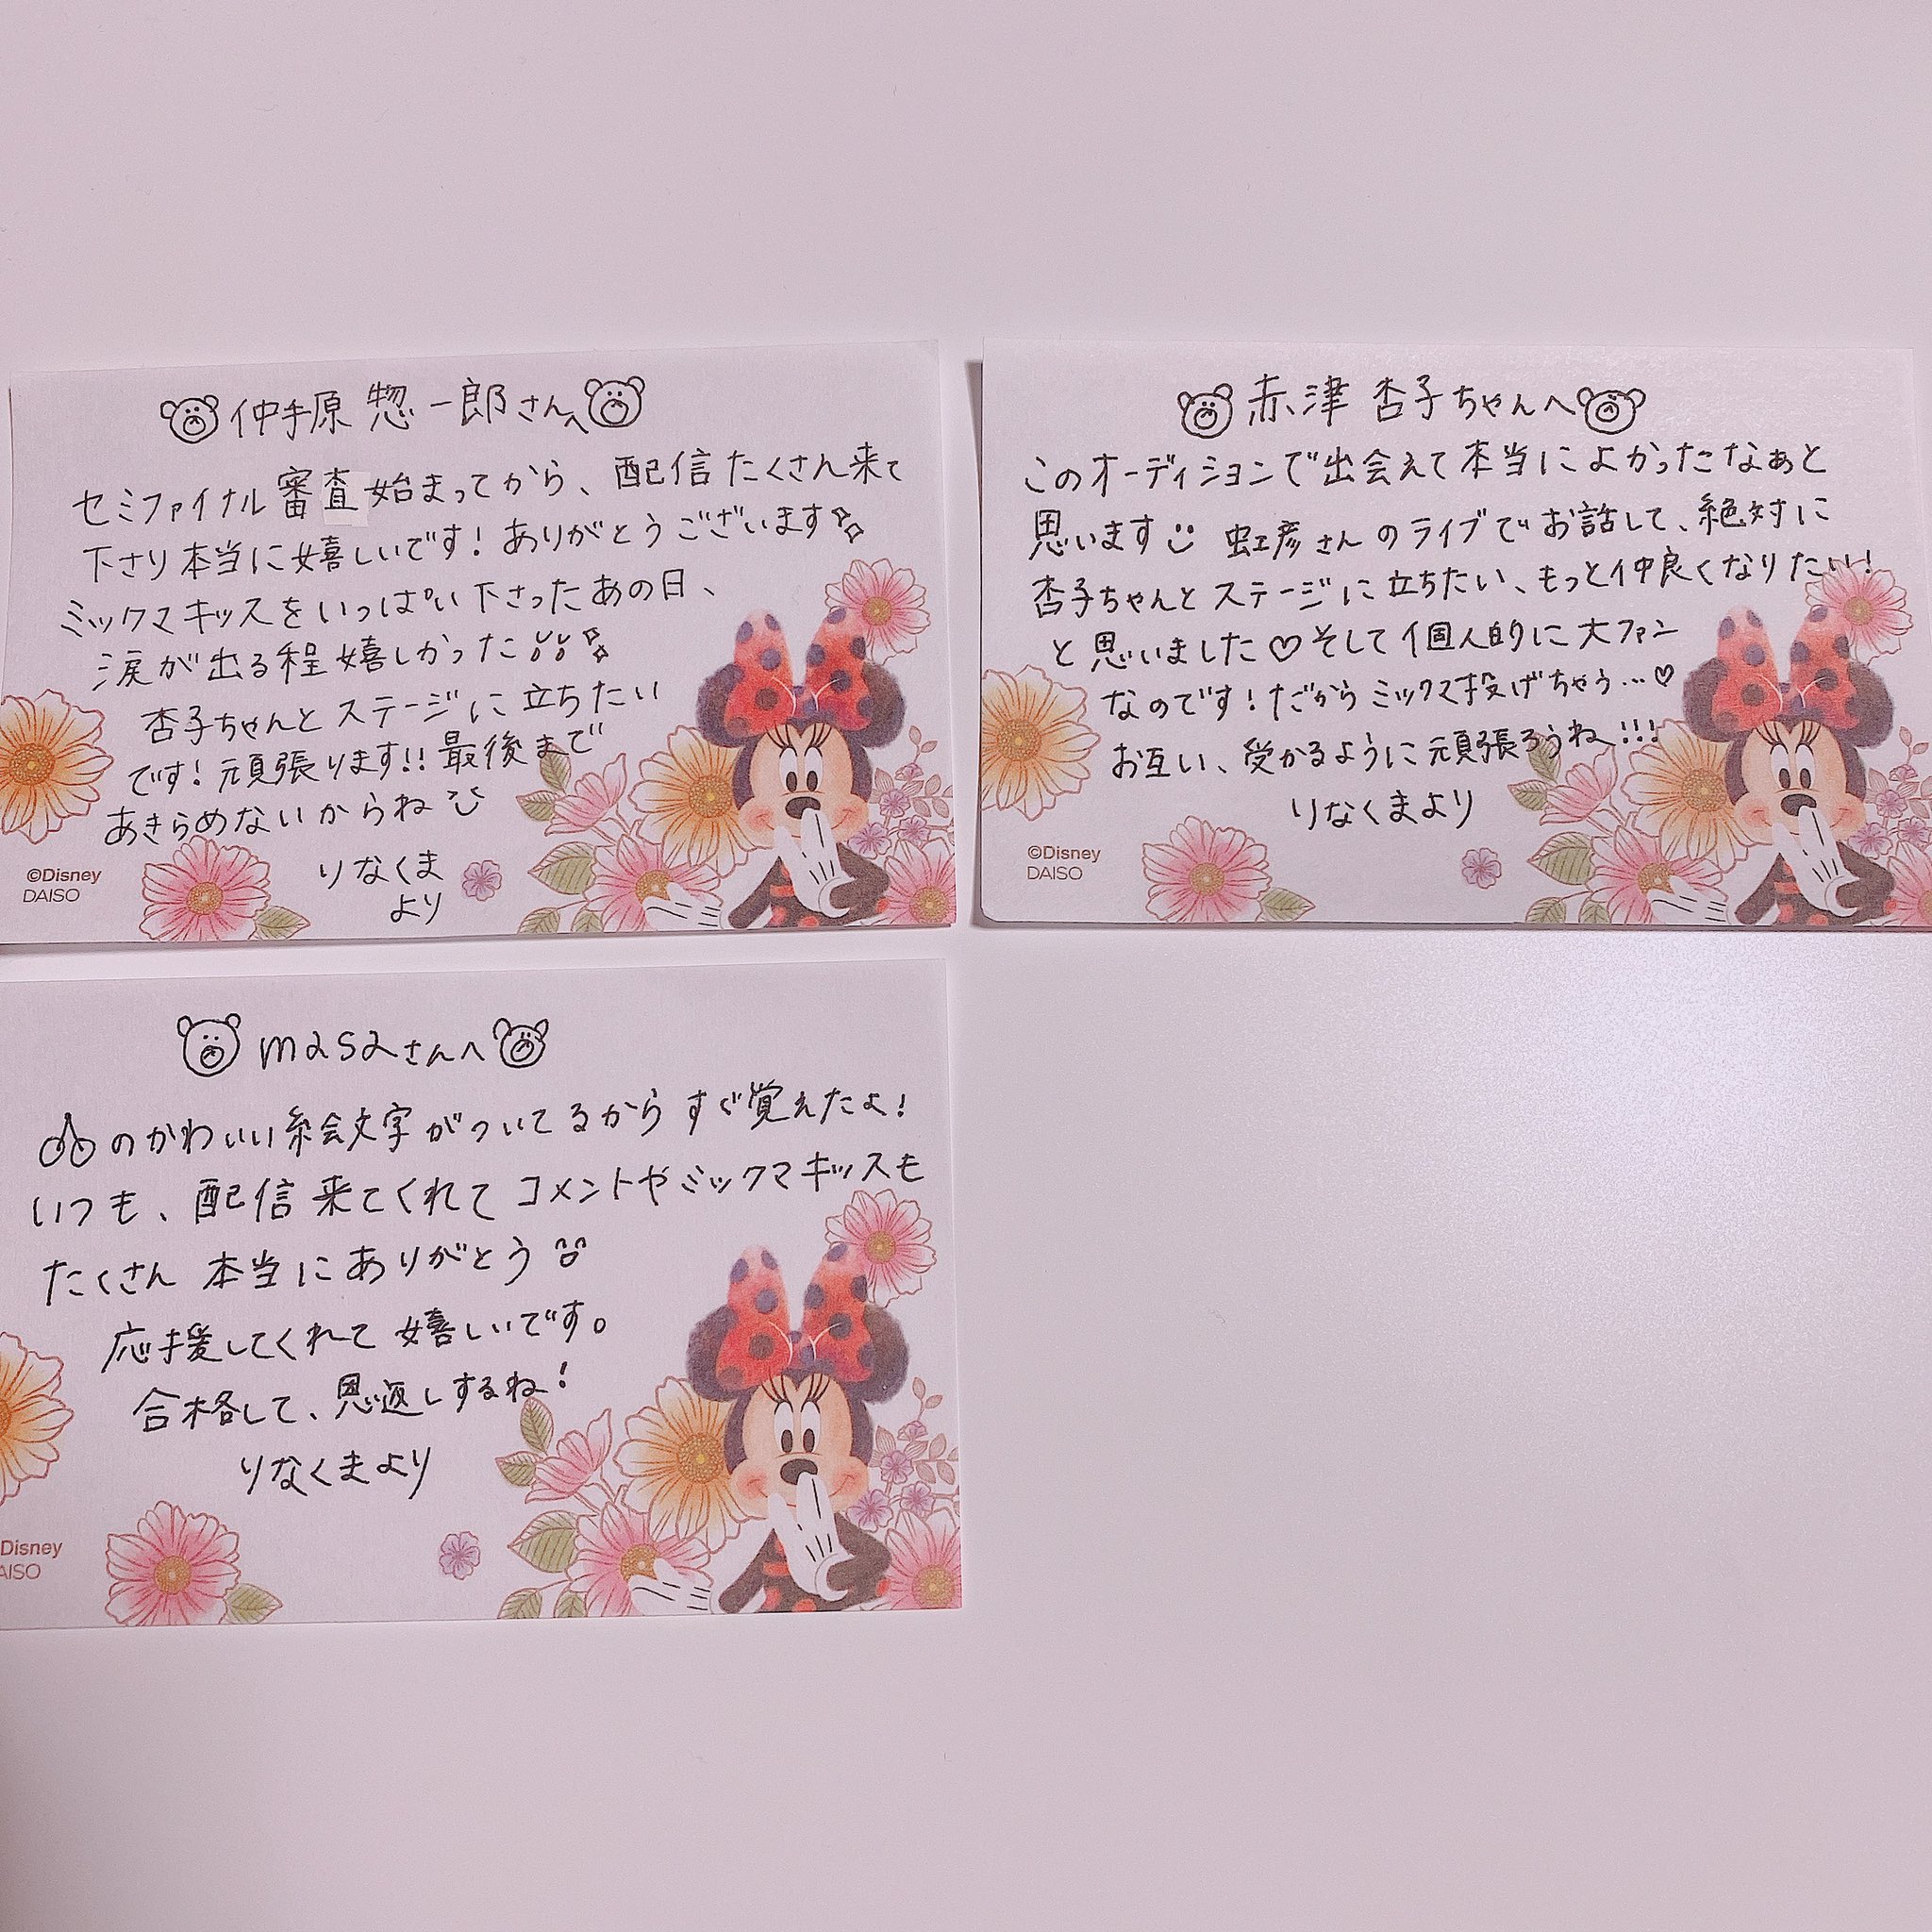 仲手原 惣一郎さんへ
セミファイナル審査始まってから、配信たくさん来て
下さり本当に嬉しいです！ありがとうございます
ミックマキッスをいっぱい下さったあの日、
涙が出る程嬉しかった
杏子ちゃんとステージに立ちたい
です！頑張ります!!最後まで
あきらめないからね
りなくま
より
©Disney
DAISO
赤津 杏子ちゃんへ
このオーディションで出会えて本当によかったなぁと
思います 虹彦さんのライブでお話して、絶対に
杏子ちゃんとステージに立ちたい、もっと仲良くなりたい！
と思いました♡そして個人的に大ファン
なのです！だからミックマ投げちゃう…♡
お互い、受かるように頑張ろうね!!!
りなくまより
©Disney
DAISO
masaさんへ
のかわいい絵文字がついてるからすぐ覚えたよ！
いつも、配信来てくれてコメントやミックマキッスも
たくさん 本当にありがとう
応援してくれて嬉しいです。
合格して、恩返しするね！
りなくまより
Disney
AISO